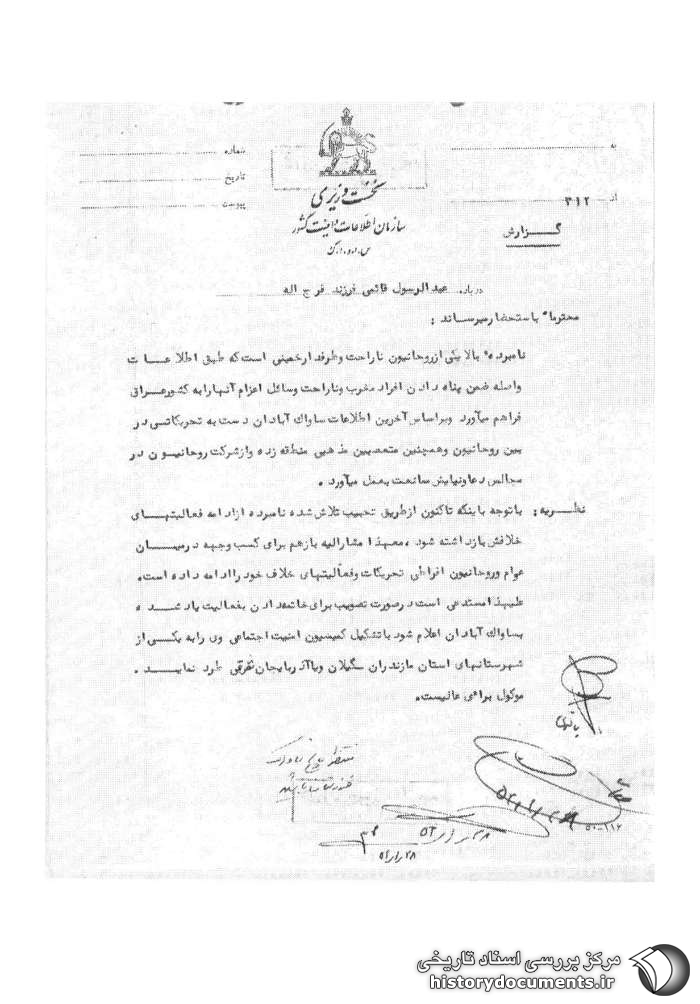 به
شماره
تاریخ
از ۳۱۲
پیوست
نخست وزیری
سازمان اطلاعات و امنیت کشور
س.ا.و.ا.ک
گـــزارش
درباره عبدالرسول قائمی فرزند فرج اله
محترما" باستحضار میرساند :
نامبرده بالا یکی از روحانیون ناراحت و طرفدار خمینی است که طبق اطلاعــات
واصله ضمن پناه دادن افراد مخرب و ناراحت وسائل اعزام آنها را به کشور عـراق
فراهم میآورد وبراساس آخرین اطلاعات ساواک آبادان دست به تحریکاتی در
بین روحانیون وهمچنین متعصبین مذهبی منطقه زده واز شرکت روحانیـون در
مجالس دعا ونیایش ممانعت بعمل میآورد .
نظـریه : باتوجه باینکه تاکنون از طریق تحبیب تلاش شده نامبرده از ادامه فعالیتهـای
خلافش بازداشته شود ، معهذا مشارالیه بازهم برای کسب وجهه درمیـان
عوام وروحانیون افراطی تحریکات وفعالیتهای خلاف خود را ادامه داده است.
علیهذا مستدعی است درصورت تصویب برای خاتمه دادن بفعالیت یاد شـده
بساواک آبادان اعلام شود با تشکیل کمیسیون امنیت اجتماعی وی را به یکـی از
شهرستانهای استان مازندران ـ گیلان ویا آذربایجان شرقی طرد نمایـد .
موکول برای عالیست.
۲۸/۱/۵۲
۵۰-۱۱۲
مرکز بررسی اسناد تاریخی
historydocuments.ir